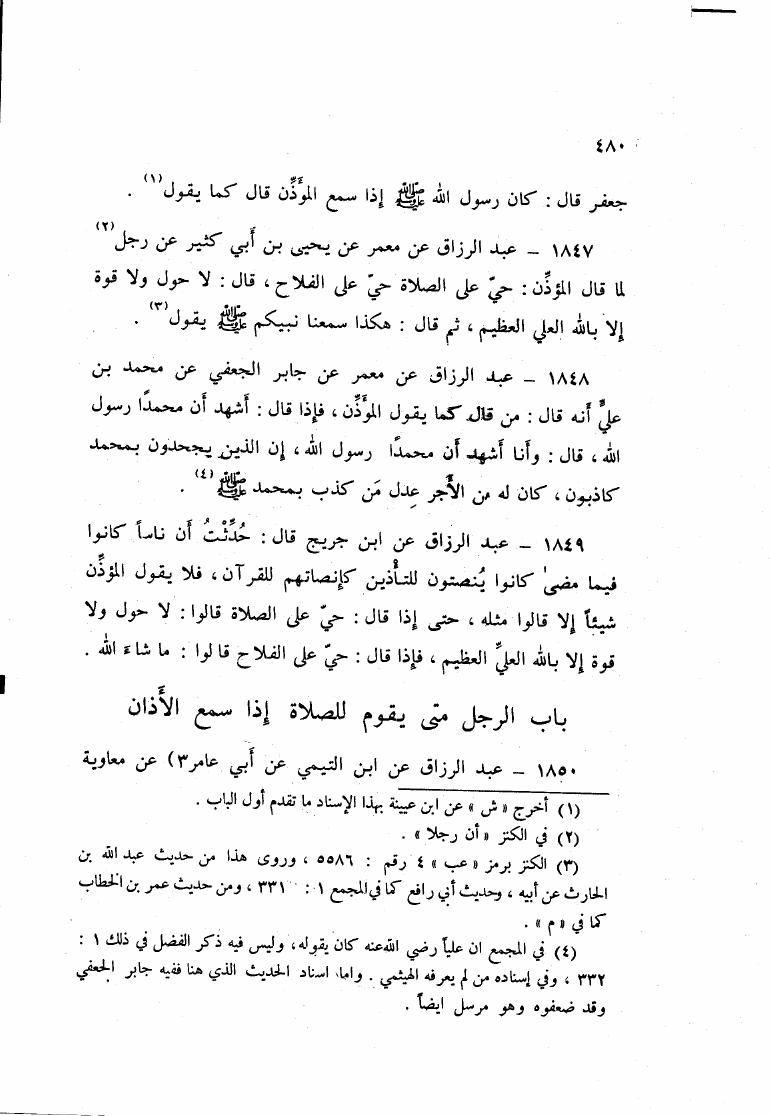 ٤٨٠
جعفر قال : كان رسول الله ﷺ إذا سمع المؤَذِّن قال كما يقول(١) .
١٨٤٧ – عبد الرزاق عن معمر عن يحيى بن أبي كثير عن رجل(٢)
لما قال المؤذِّن : حيّ على الصلاة حيّ على الفلاح ، قال : لا حول ولا قوة
إلا بالله العلي العظيم ، ثم قال : هكذا سمعنا نبيكم ﷺ يقول(٣) .
١٨٤٨ – عبد الرزاق عن معمر عن جابر الجعفي عن محمد بن
عليٍّ أنه قال : من قال كما يقول المؤَذِّن ، فإذا قال : أشهد أن محمدًا رسول
الله ، قال : وأنا أشهد أن محمدًا رسول الله ، إن الذين يجحدون بمحمد
كاذبون ، كان له من الأَجر عِدل مَن كذب بمحمد ﷺ(٤) .
١٨٤٩ – عبد الرزاق عن ابن جريج قال : حُدِّثْتُ أن ناساً كانوا
فيما مضىٰ كانوا يُنصتون للتأْذين كإنصاتهم للقرآن ، فلا يقول المؤذِّن
شيئاً إلا قالوا مثله ، حتى إذا قال : حيّ على الصلاة قالوا : لا حول ولا
قوة إلا بالله العليِّ العظيم ، فإذا قال : حيّ على الفلاح قالوا : ما شاءَ الله .
باب الرجل متى يقوم للصلاة إذا سمع الأَذان
١٨٥٠ – عبد الرزاق عن ابن التيمي عن أبي عامر٣) عن معاوية
(١) أخرج « ش » عن ابن عيينة بهذا الإسناد ما تقدم أول الباب .
(٢) في الكنز « أن رجلا » .
(٣) الكنز برمز « عب » ٤ رقم : ٥٥٨٦ ، وروى هذا من حديث عبد الله بن
الحارث عن أبيه ، وحديث أبي رافع كما في المجمع ١ : ٣٣١ ، ومن حديث عمر بن الخطاب
كما في « م » .
(٤) في المجمع ان علياً رضي الله عنه كان يقوله ، وليس فيه ذكر الفضل في ذلك ١ :
٣٣٢ ، وفي إسناده من لم يعرفه الهيثمي . واما اسناد الحديث الذي هنا ففيه جابر الجعفي
وقد ضعفوه وهو مرسل ايضاً .